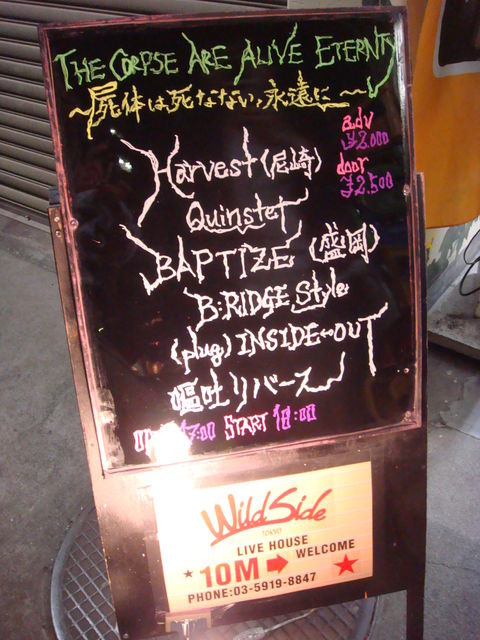 THE CORPSE ARE ALIVE ETERNTY
～屍体は死なない、永遠に～
adv
¥2.000
door
¥2.500
Harvest (尼崎)
Quinstet
BAPTIZE (盛岡)
B:RIDGE Style
(plug) INSIDE↔OUT
嘔吐リバース
17:00 START 18:00
Wild Side
TOKYO
LIVE HOUSE
★ 10M ➡ WELCOME ★
PHONE:03-5919-8847